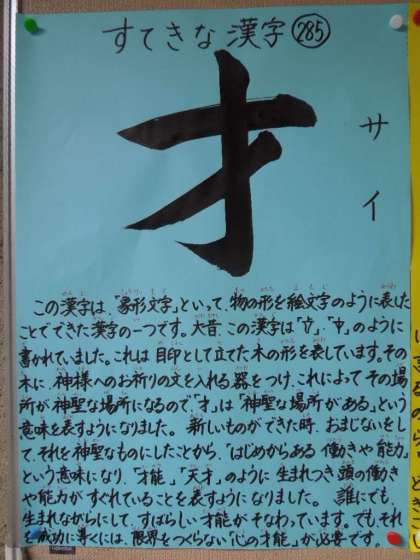 すてきな漢字285
才
サイ
この漢字は、「象形文字」といって、物の形を絵文字のように表した
ことでできた漢字の一つです。大昔、この漢字は「」、「」のように
書かれていました。これは目印として立てた木の形を表しています。その
木に、神様へのお祈りの文を入れる器をつけ、これによってその場
所が神聖な場所になるので「才」は「神聖な場所がある」という
意味を表すようになりました。新しいものができた時、おまじないをし
て、それを神聖なものにしたことから、「はじめからある働きや能力」
という意味になり、「才能」「天才」のように生まれつき頭の働き
や能力がすぐれていることを表すようになりました。誰にでも、
生まれながらにして、すばらしい才能がそなわっています。でも、それ
を成功に導くには、限界をつくらない「心の才能」が必要です。